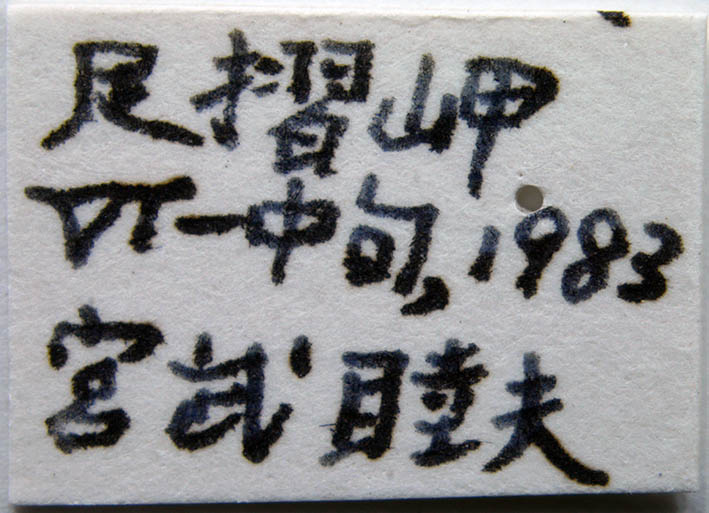 足摺岬
VI-中旬,1983
宮武睦夫